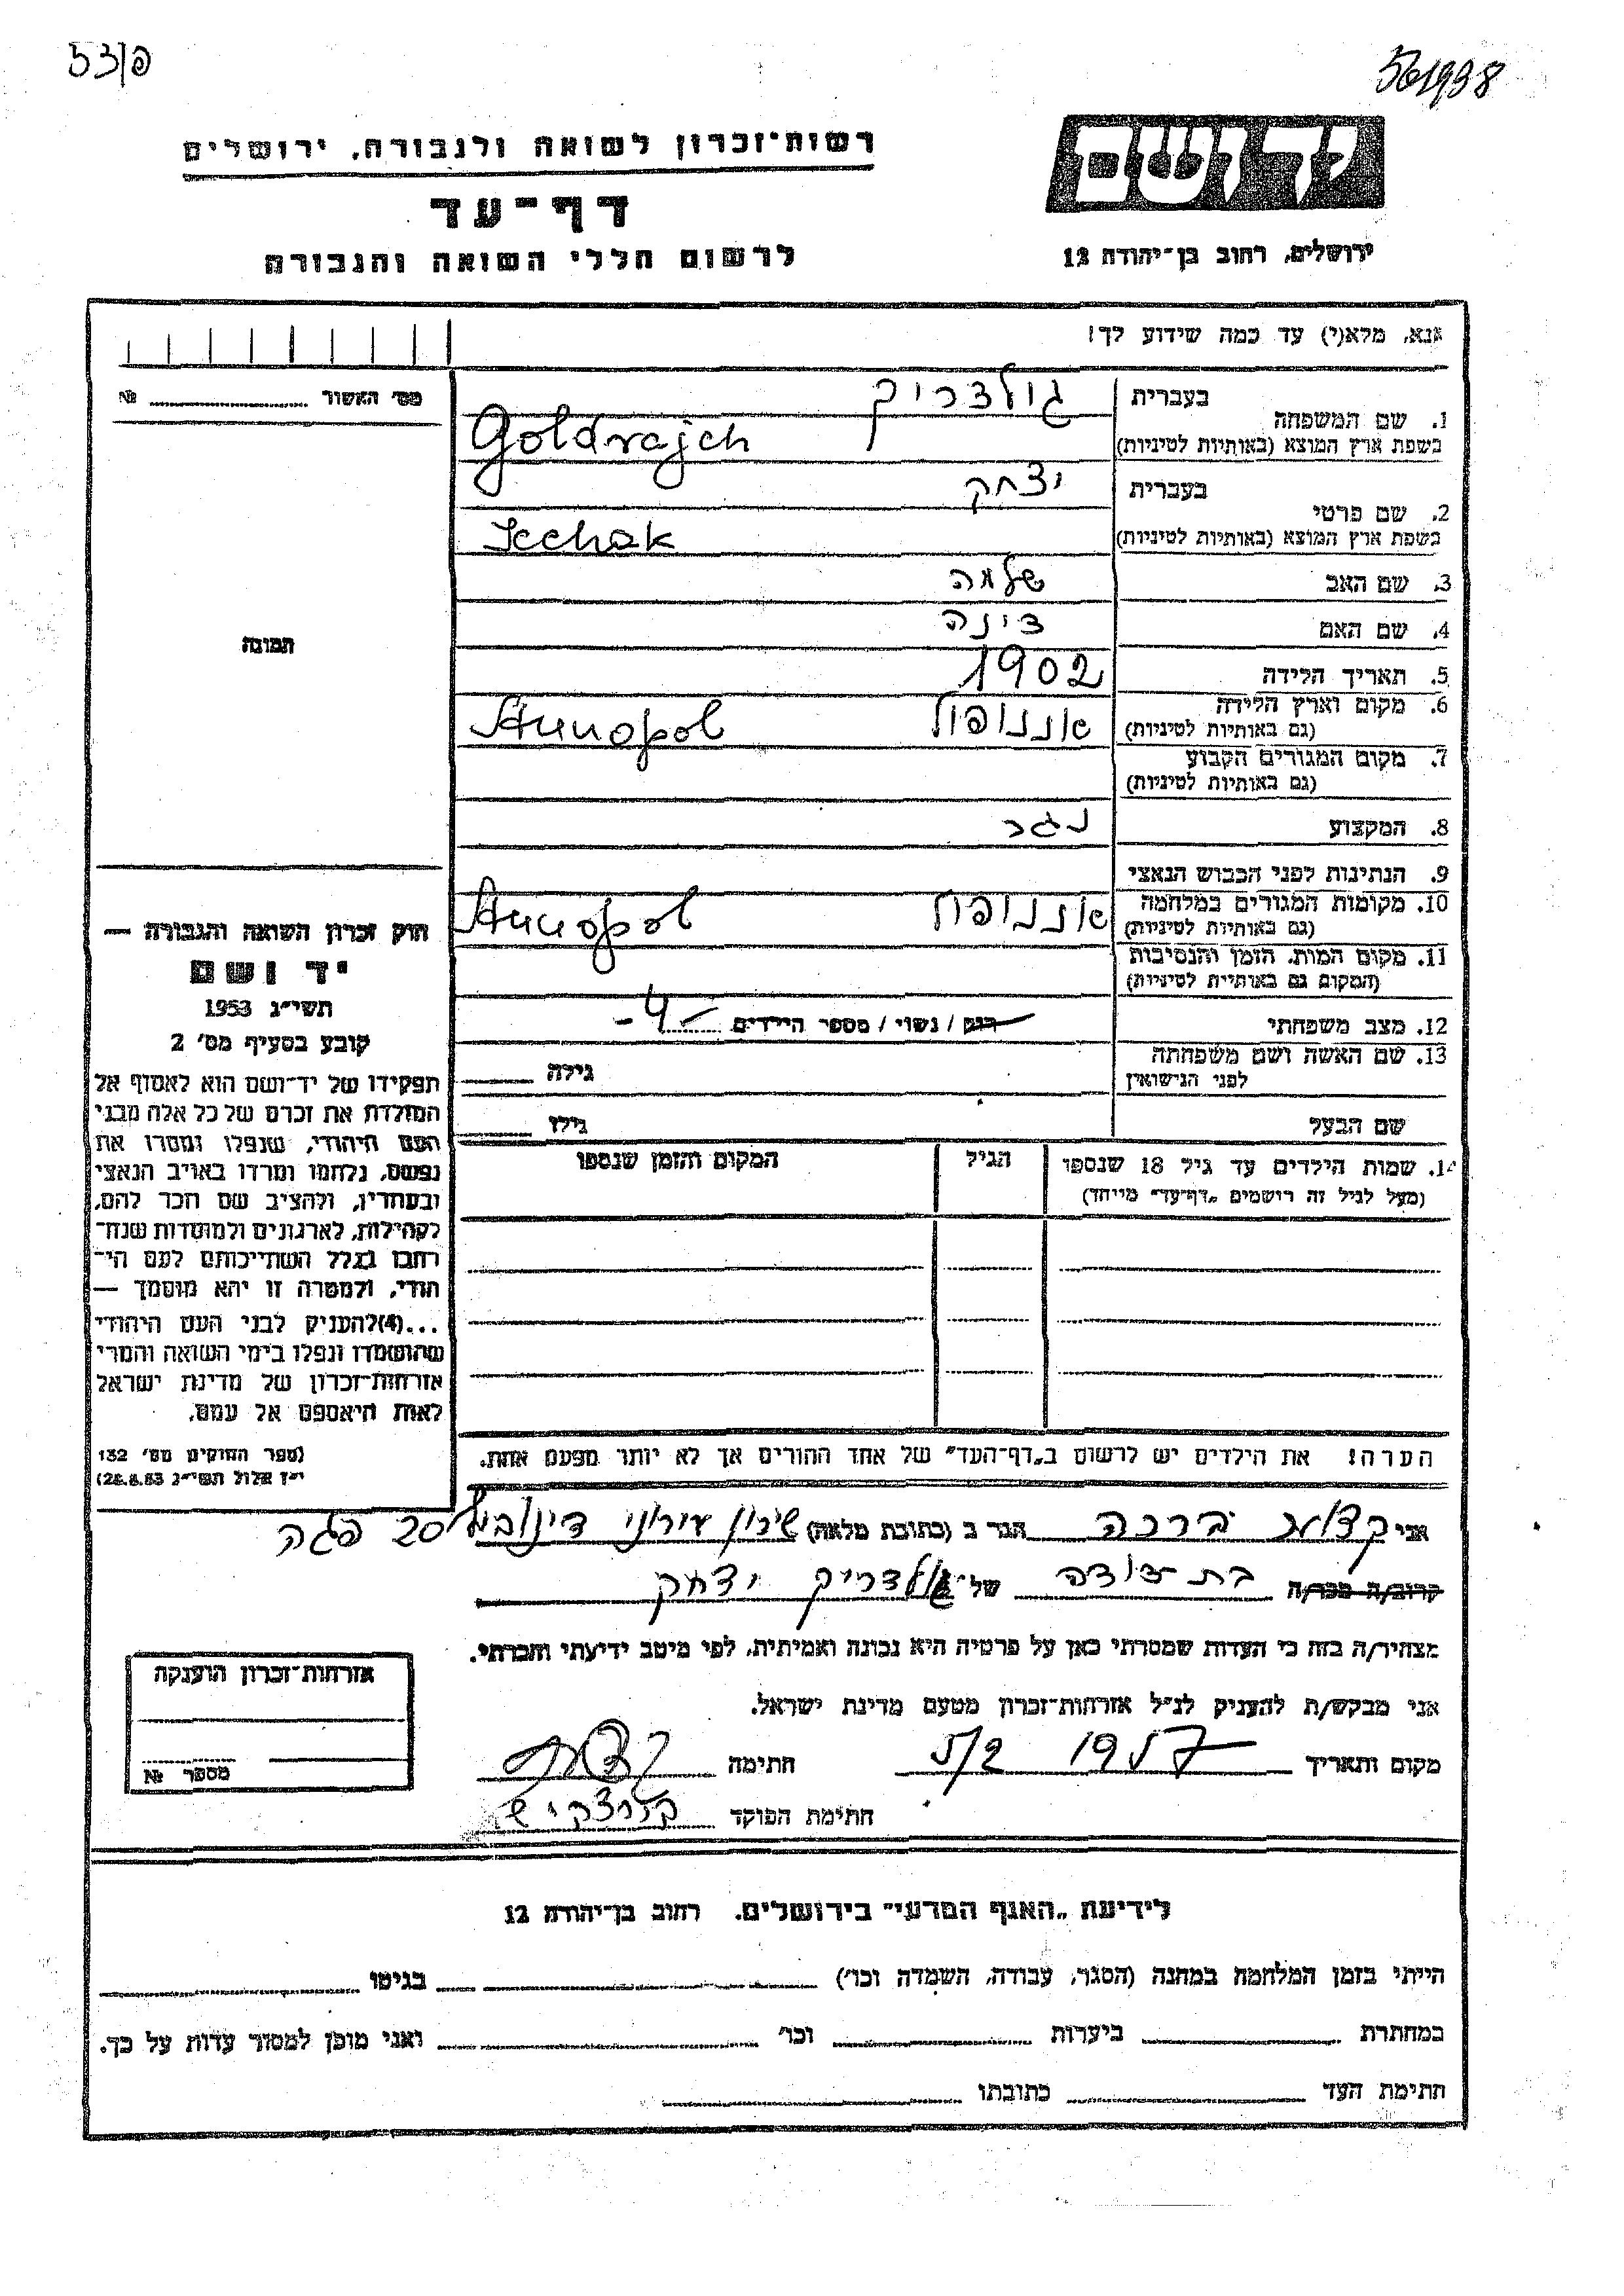 53/פ
561998
רשות־זכרון לשואה ולגבורה, ירושלים
דף־עד
לרשום חללי השואה והגבורה
יד ושם
ירושלים, רחוב בן־יהודה 12
אנא, מלא(י) עד כמה שידוע לך!
מס׳ האשור № 
1. שם המשפחה
בעברית גולדריך
בשפת ארץ המוצא (באותיות לטיניות) Goldrajch
2. שם פרטי
בעברית יצחק
בשפת ארץ המוצא (באותיות לטיניות) Icchak
3. שם האב שלמה
4. שם האם דינה
5. תאריך הלידה 1902
6. מקום וארץ הלידה
(גם באותיות לטיניות) אננופול Annopol
7. מקום המגורים הקבוע
(גם באותיות לטיניות)
8. המקצוע נגר
9. הנתינות לפני הכבוש הנאצי
10. מקומות המגורים במלחמה
(גם באותיות לטיניות) אננופול Annopol
11. מקום המות, הזמן והנסיבות
(המקום גם באותיית לטיניות)
12. מצב משפחתי רוק / נשוי / מספר הילדים -4-
13. שם האשה ושם משפחתה
לפני הנישואין גילה
שם הבעל גילו
14. שמות הילדים עד גיל 18 שנספו
(מעל לגיל זה רושמים „דף־עד״ מייחד)
הגיל
המקום והזמן שנספו
הערה! את הילדים יש לרשום ב„דף־העד״ של אחד ההורים אך לא יותר מפעם אחת.
תמונה
חוק זכרון השואה והגבורה —
יד ושם
תשי״ג 1953
קובע בסעיף מס׳ 2
תפקידו של יד־ושם הוא לאסוף אל
המולדת את זכרם של כל אלה מבני
העם היהודי, שנפלו ומסרו את
נפשם, נלחמו ומרדו באויב הנאצי
ובעוזריו, ולהציב שם וזכר להם,
לקהילות, לארגונים ולמוסדות שנח־
רבו בגלל השתייכותם לעם הי־
הודי, ולמטרה זו יהא מוסמך —
...(4)להעניק לבני העם היהודי
שהושמדו ונפלו בימי השואה והמרי
אזרחות־זכרון של מדינת ישראל
לאות היאספם אל עמם.
(ספר החוקים מס׳ 132
י״ז אלול תשי״ג 28.8.53)
אני ברכה הגר ב (כתובת מלאה) שיכון עירוני 20
קרוב/ה מכר/ה בת דודה של גולדריך יצחק
מצהיר/ה בזה כי העדות שמסרתי כאן על פרטיה היא נכונה ואמיתית, לפי מיטב ידיעתי והכרתי.
אני מבקש/ת להעניק לנ״ל אזרחות־זכרון מטעם מדינת ישראל.
מקום ותאריך 1957 5/2 חתימה
חתימת הפוקד
אזרחות־זכרון הוענקה
מספר №
לידיעת „האגף המדעי״ בירושלים. רחוב בן־יהודה 12
הייתי בזמן המלחמה במחנה (הסגר, עבודה, השמדה וכו׳) בגיטו
במחתרת ביערות וכו׳ ואני מוכן למסור עדות על כך.
חתימת העד כתובתו